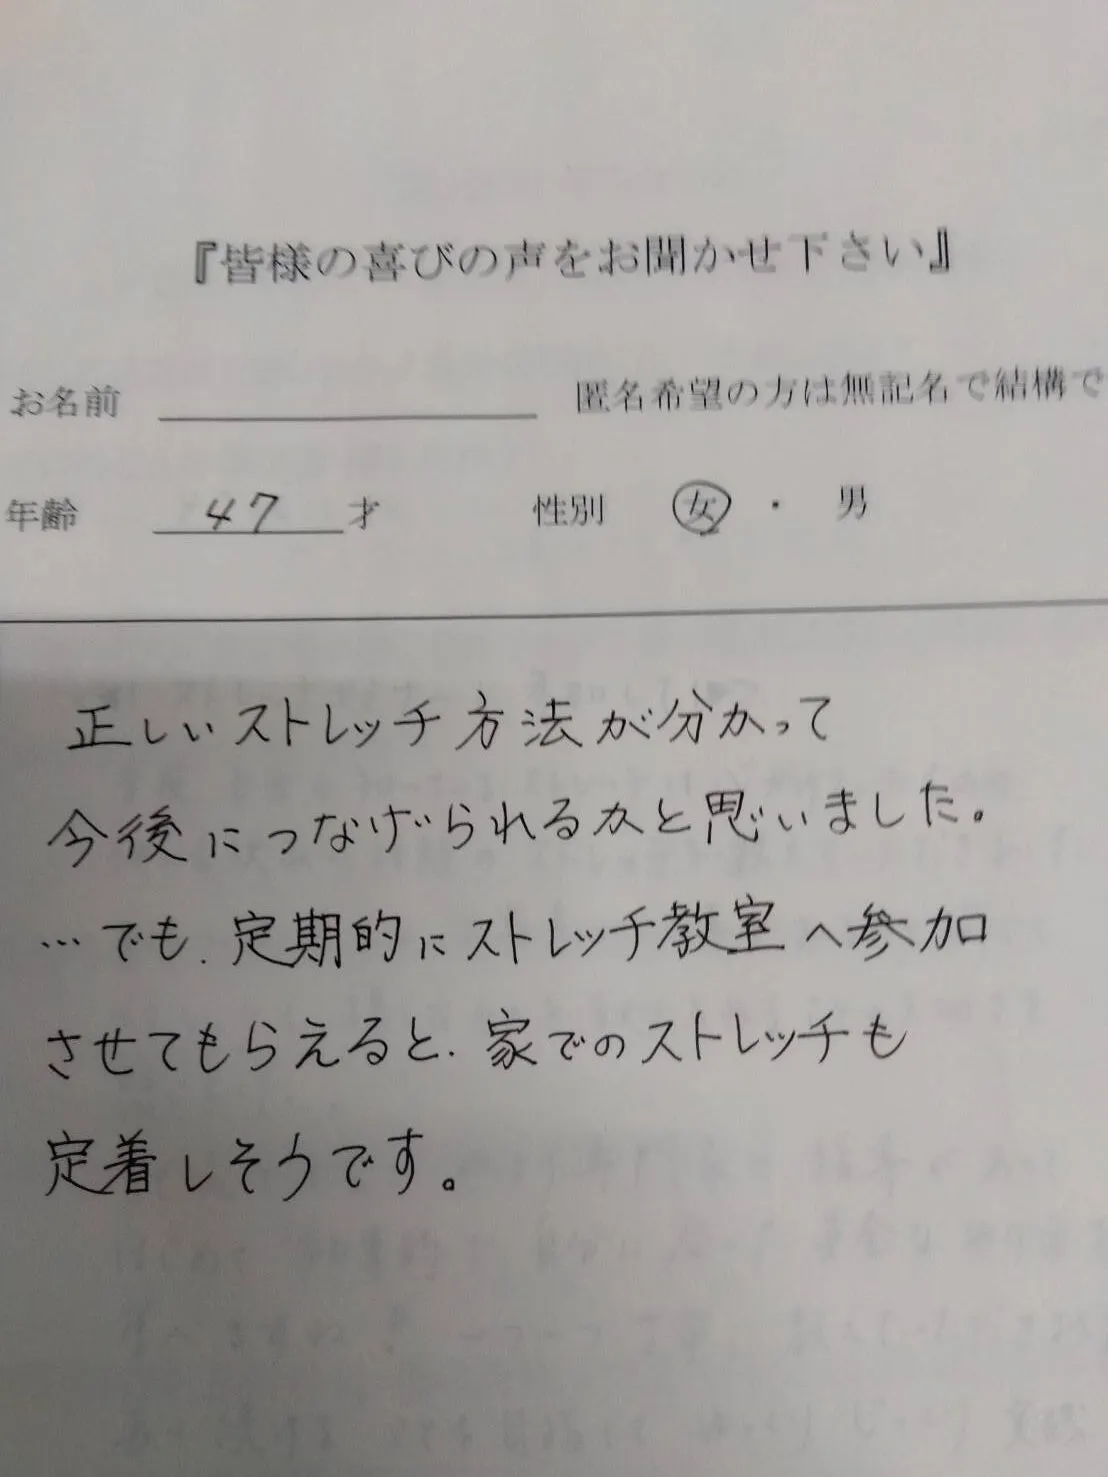 『皆様の喜びの声をお聞かせ下さい』
お名前 匿名希望の方は無記名で結構で
年齢 47 才 性別 女 ・ 男
正しいストレッチ方法が分かって
今後につなげられるかと思いました。
…でも、定期的にストレッチ教室へ参加
させてもらえると、家でのストレッチも
定着しそうです。